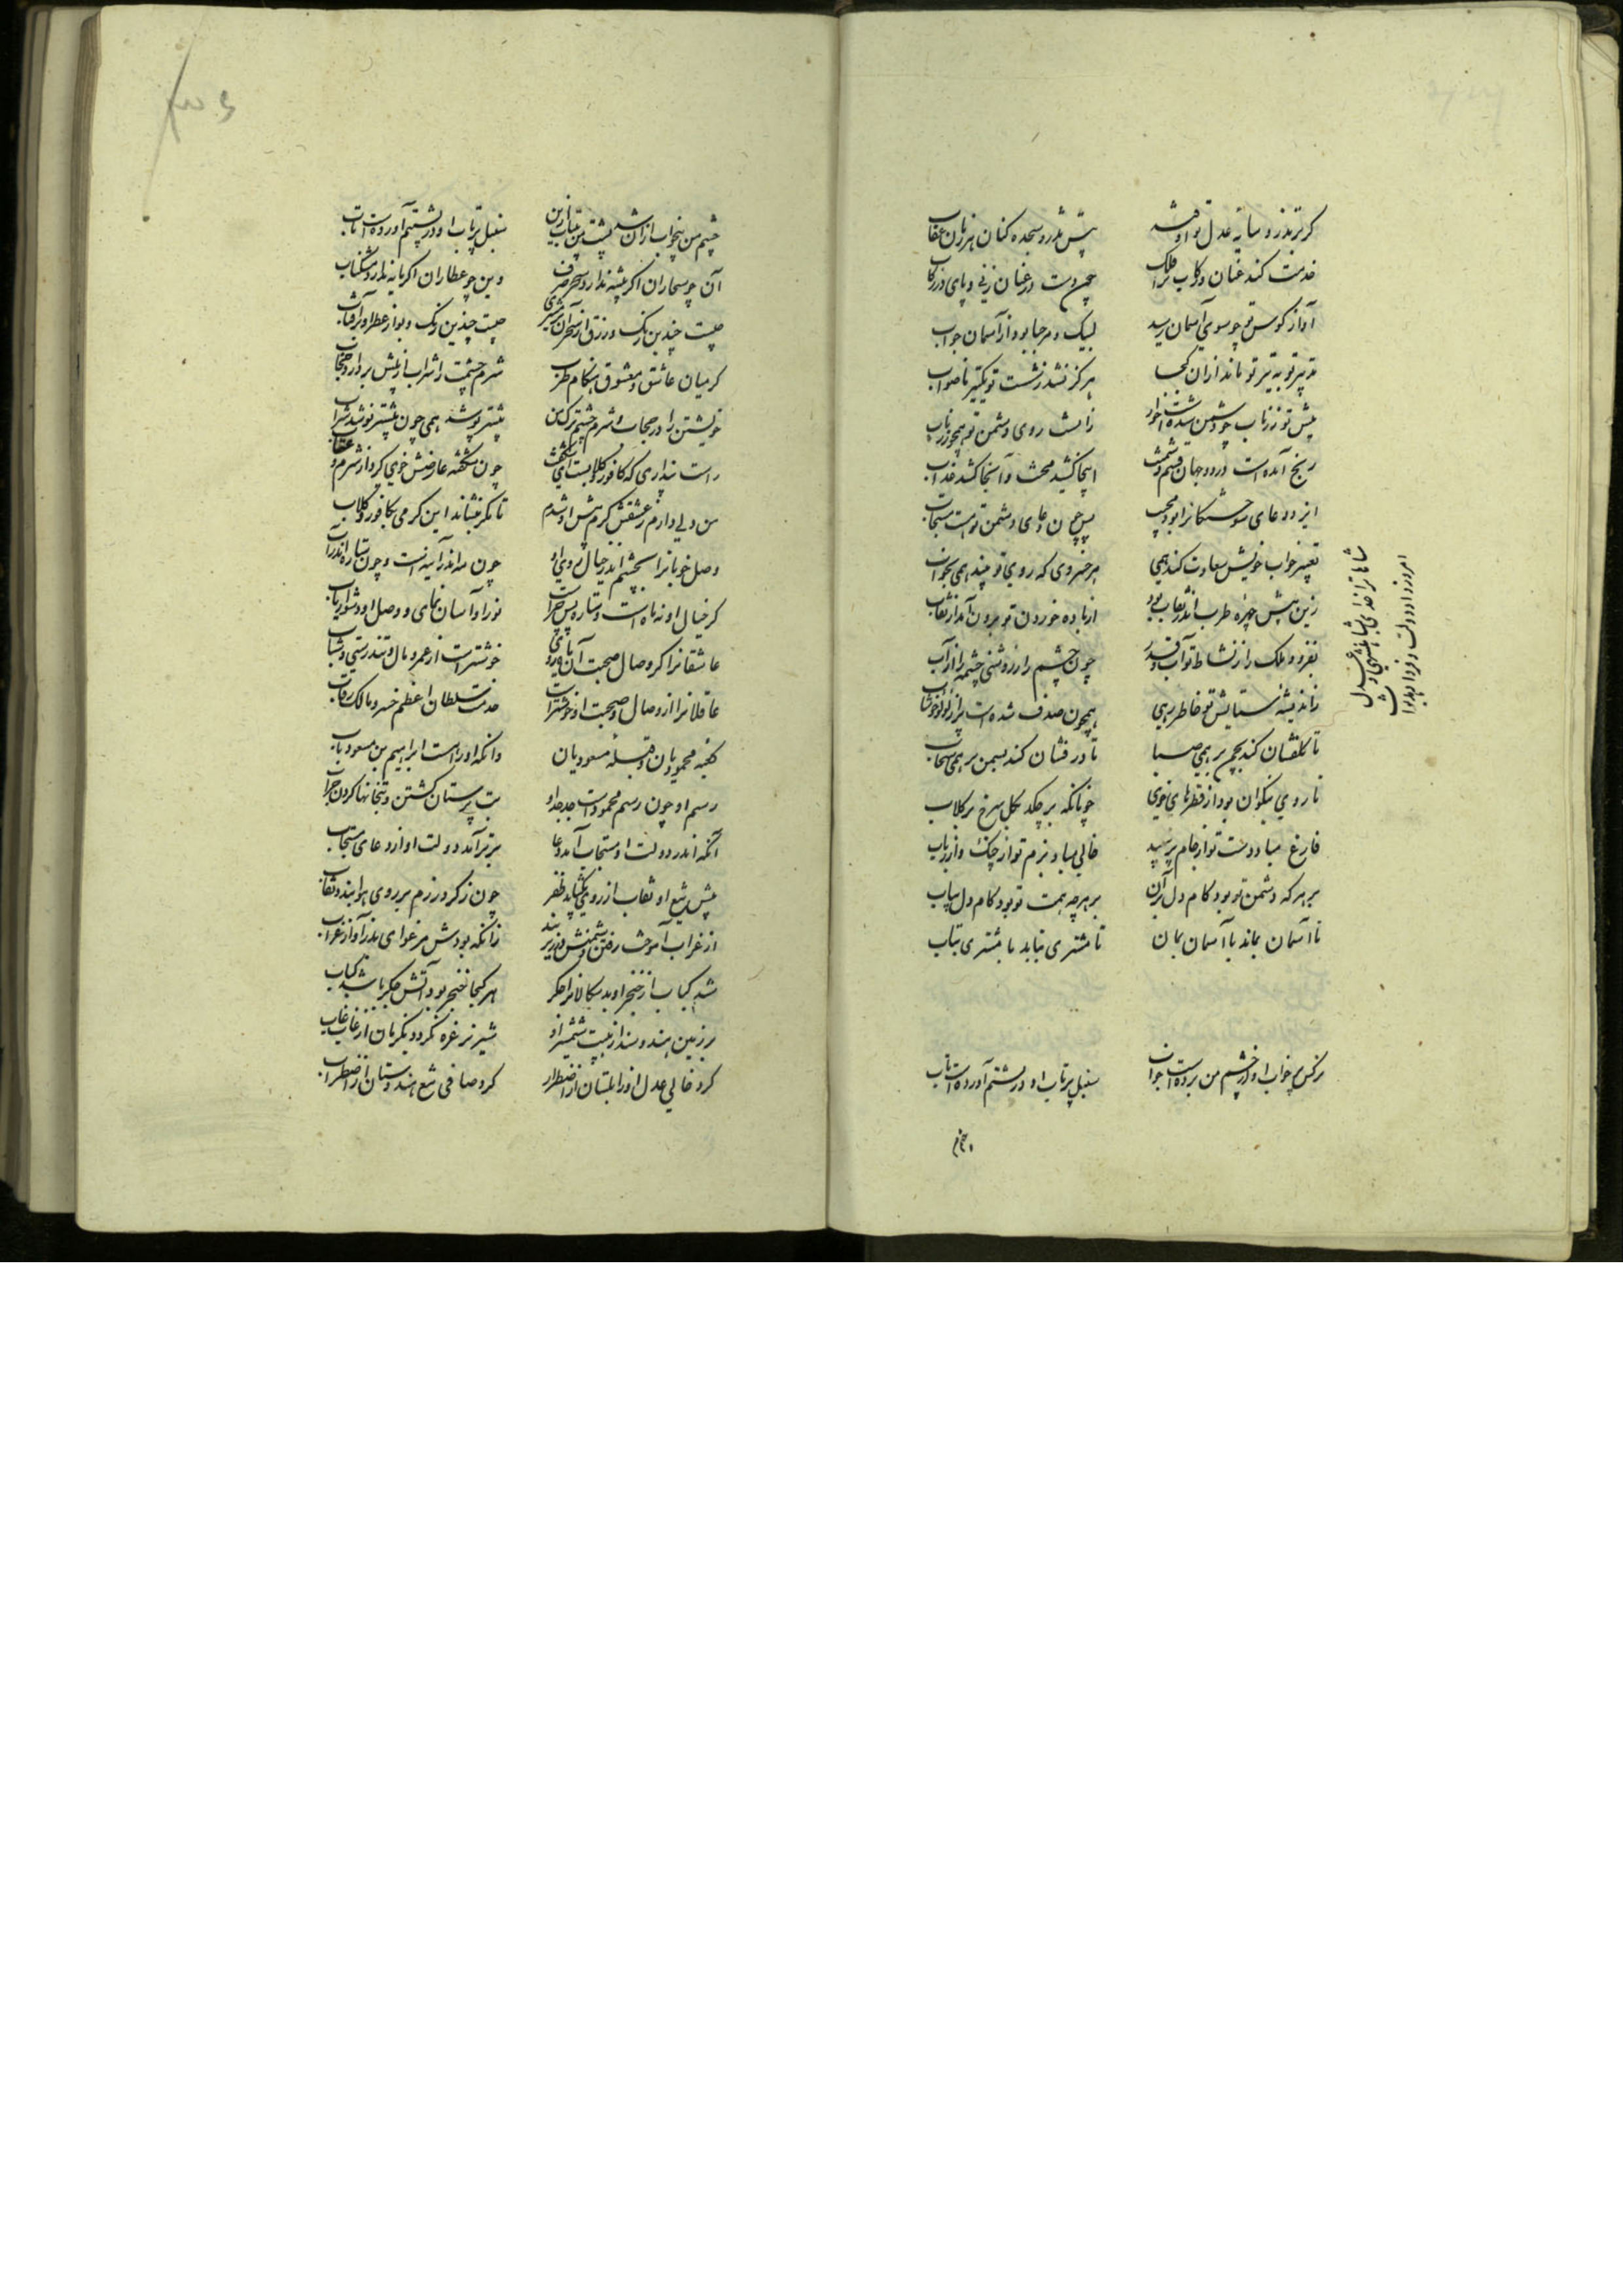 گر بر تذرو سایه عدل تو اوفتد
پیش تذرو سجده کنان هر زمان عقاب
خدمت کند عنان و رکاب ترا فلک
چون دست در عنان زنی و پای در رکاب
آواز کوس تو چو سوی آسمان رسد
لبیک و مرحبا بود از آسمان جواب
تدبیر تو به تیر تو ماند از آن کجا
هرگز نشد ز شست تو یک تیر ناصواب
پیش تو زر ناب چو دشمن شدست خوار
زانست روی دشمن تو همچو زر ناب
رنج آمده است در دو جهان قسم دشمنت
اینجا کشید محنت و آنجا کشد عذاب
ایزد دعای سوختگانرا بود مجیب
پس چون دعای دشمن تو نیست مستجاب
تعبیر خواب خویش سعادت کند همی
هر خسروی که روی تو بیند همی بخواب
زین پیش چهره طرب اندر نقاب بود
از باده خوردن تو برون آمد از نقاب
بفزود ملک را ز نشاط تو آب و قدر
چون چشم را ز روشنی چشمه را ز آب
ز اندیشه ستایش تو خاطر رهی
همچون صدف شده است پر از لولو خوشاب
تا گلفشان کند بچمن بر همی صبا
تا درفشان کند بسمن بر همی سحاب
تا روی نیکوان بود از قطرهای خوی
چونانکه بر چکد بگل سرخ بر گلاب
فارغ مباد دست تو از جام پر نبید
خالی مباد بزم تو از چنگ و از رباب
بر هر که دشمن تو بود کام دل بران
بر هرچه همت تو بود کام دل بیاب
تا آسمان بماند با آسمان بمان
تا مشتری بتابد با مشتری بتاب
شاها ترا خدای
امروز داد دولت و فردا دهد ثواب
نرگس پرخواب او از چشم من بردست خواب
سنبل پرتاب او در پشتم آورده است تاب
چشم من بیخواب از آن شد پشت من پرتاب ازین
سنبل پرتاب او در پشتم آورده است تاب
آن چو سحاران اگر پیشه ندارد سحر صرف
وین چو عطاران اگر مایه ندارد مشک ناب
چیست چندین رنگ و زرق از سحر آن بر مشتری
چیست چندین رنگ و بو از عطر او بر آفتاب
گر میان عاشق و معشوق هنگام طرب
شرم چشمت را شراب از پیش بردارد حجاب
خویشتن را در حجاب شرم چشم ترک من
بیشتر پوشد همی چون بیشتر نوشد شراب
راست پنداری که کافور و گلابست ای شگفت
چون شکفته عارضش خوی گیرد از شرم و عتاب
من دلی دارم ز عشقش گرم پیش او شدم
تا مگر بنشاند این گرمی بکافور و گلاب
وصل خوبانرا بچشم اندر خیال روی او
چون مه اندر آینه است و چون ستاره اندر آب
گر خیال او نه ماه است و ستاره پس چراست
نور او آسان نمای و وصل او دشوار یاب
عاشقانرا گر وصال و صحبت آن دلربای
خوشتر است از عمر و مال و تندرستی و شباب
عاقلانرا از وصال و صحبت او خوشتر است
خدمت سلطان اعظم خسرو مالک رقاب
کعبه محمودیان و قبله مسعودیان
وانکه او را هست ابراهیم بن مسعود باب
رسم او چون رسم محمودست جد جد او
بت پرستان کشتن و بتخانها کردن خراب
آنکه اندر دولت او مستجاب آمد دعا
برتر آمد دولت او از دعای مستجاب
پیش تیغ او نقاب از روی بگشاید ظفر
چون ز گرد رزم بر روی هوا بندد نقاب
زانکه بودش مرغوای بد ز آواز غراب
شد کباب از خنجر او بدسگالانرا جگر
هر کجا خنجر بود آتش جگر باشد کباب
بر زمین هند و سند از هیبت شمشیر او
شیر نر غره نگردد یک زمان از غاب غاب
کرد خالی عدل او زابلستان از اضطرار
کرد صافی تیغ هندوستان را ز اضطراب